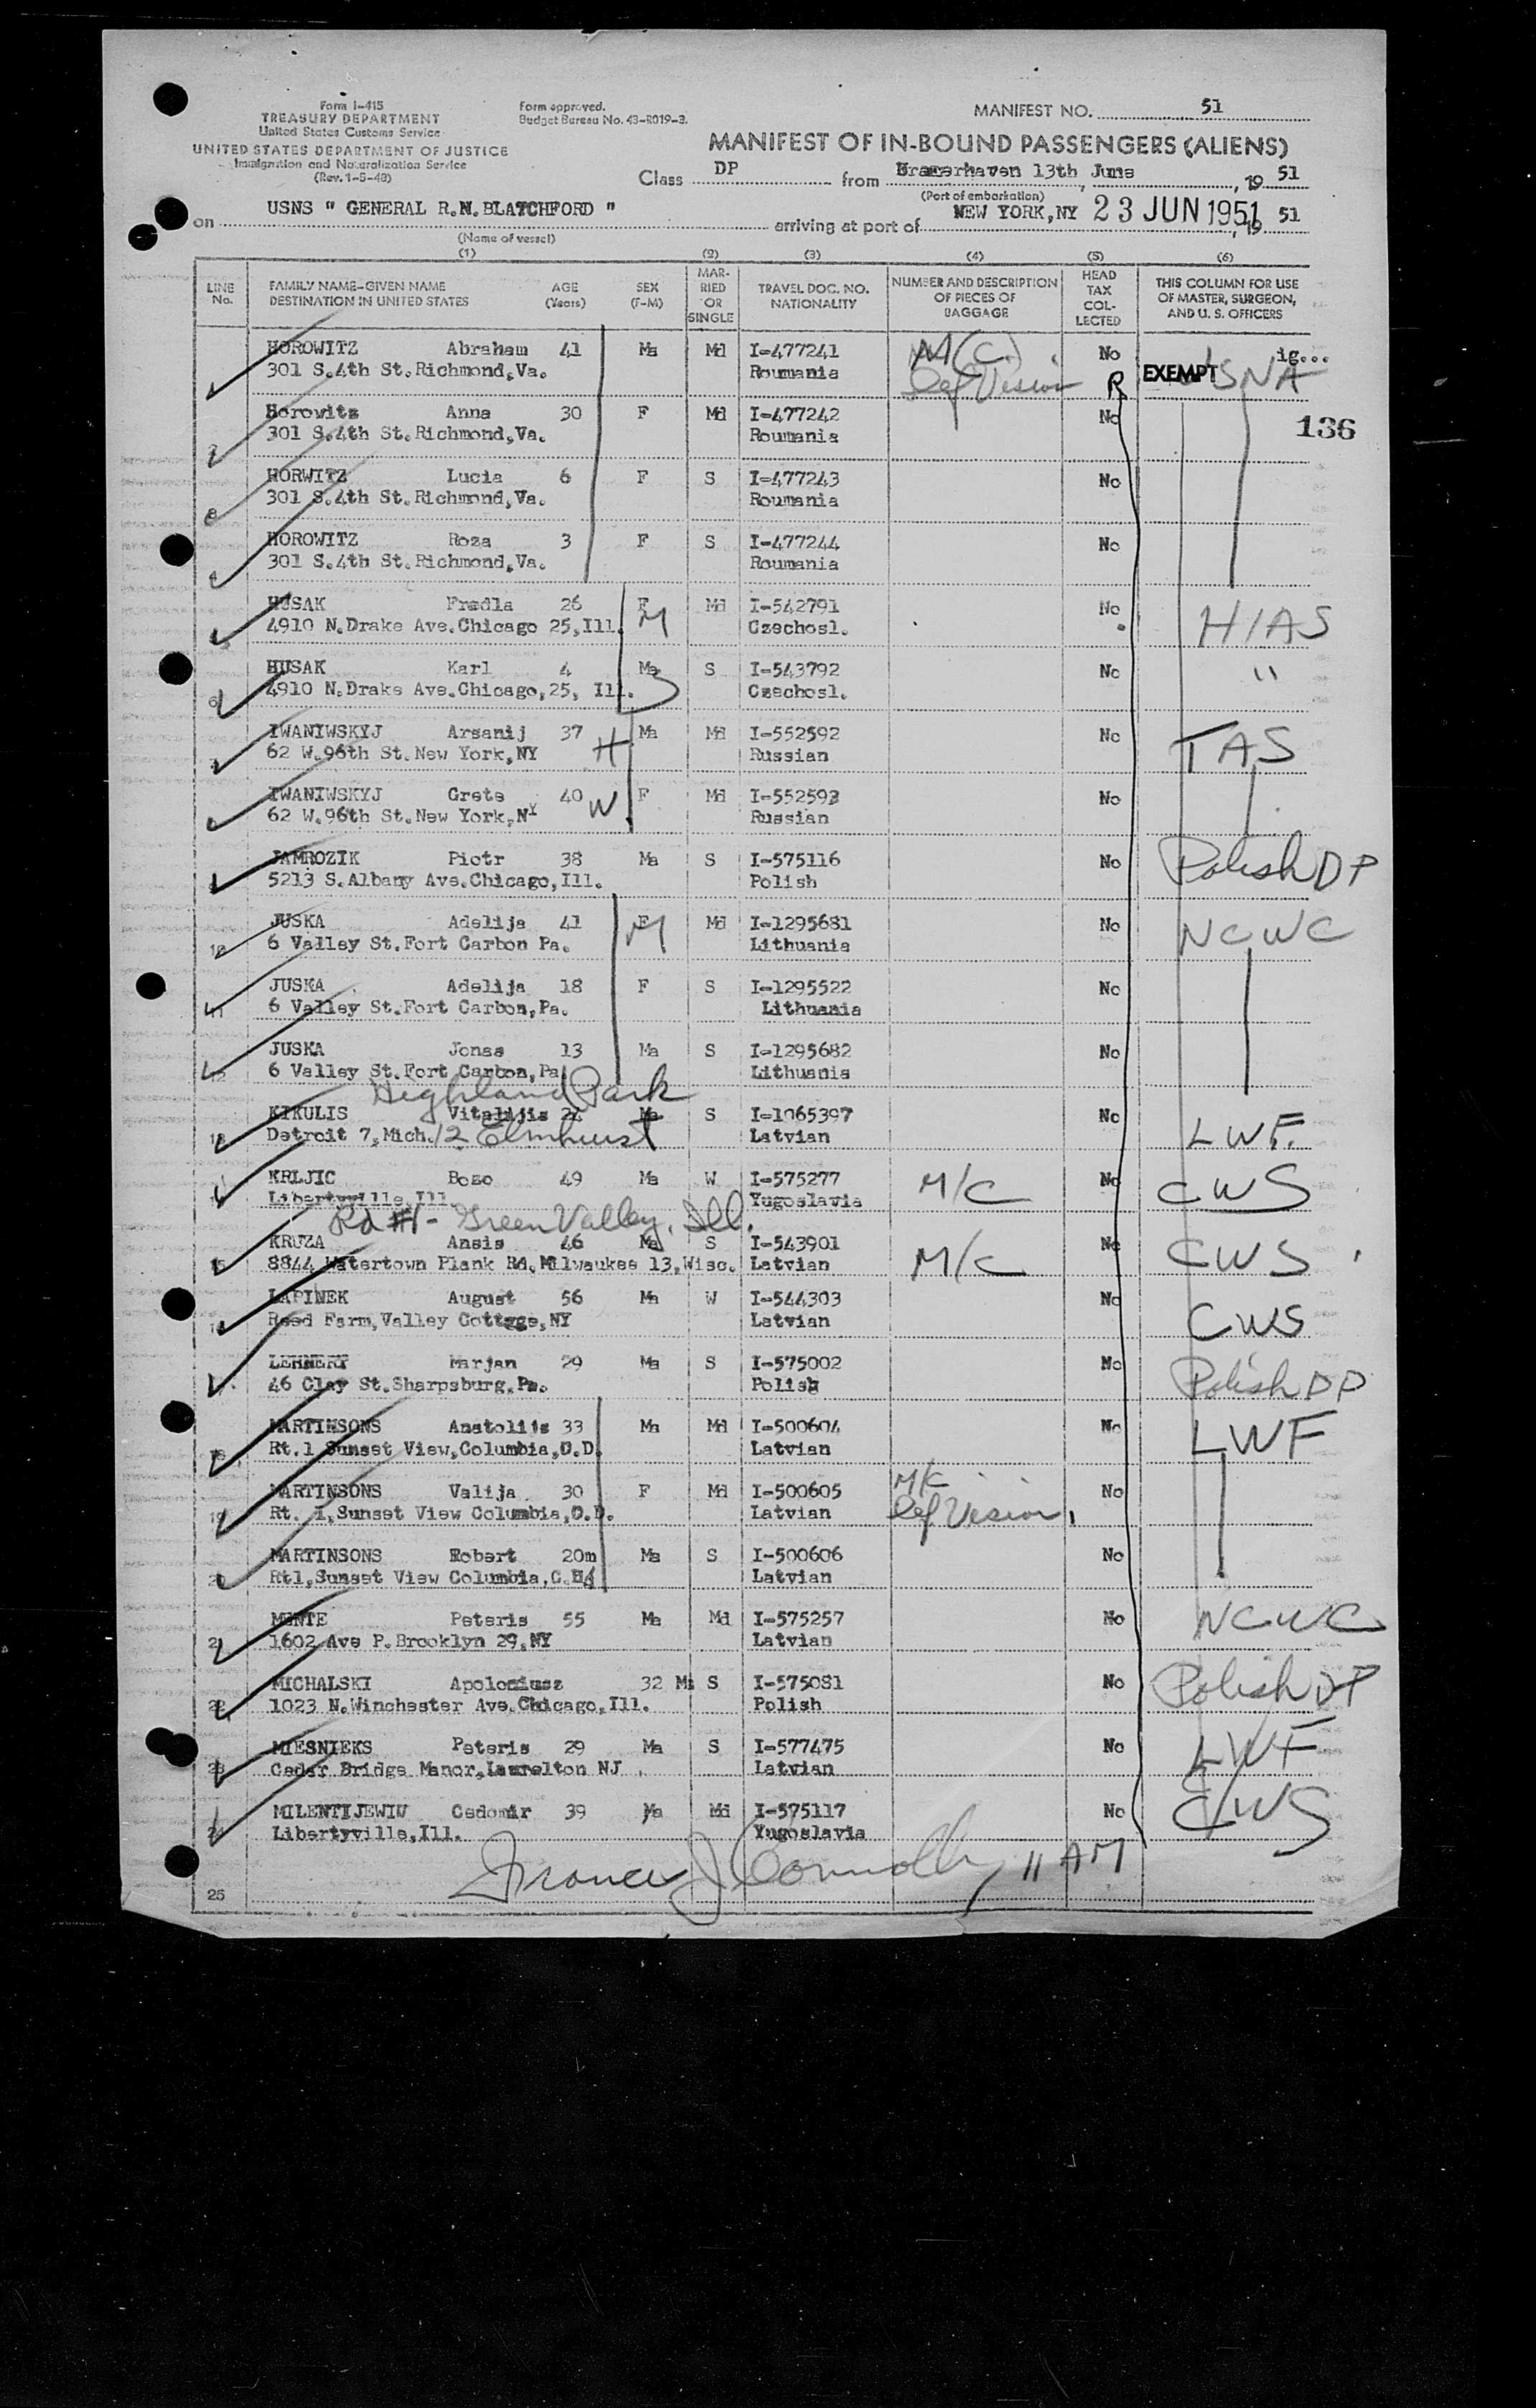 Form I-415
TREASURY DEPARTMENT
United States Customs Service
UNITED STATES DEPARTMENT OF JUSTICE
Immigration and Naturalization Service
(Rev. 1-5-48)
Form approved.
Budget Bureau No. 43-R019-3.
MANIFEST NO. 51
MANIFEST OF IN-BOUND PASSENGERS (ALIENS)
Class DP from Bramerhaven 13th June, 19 51
(Port of embarkation)
on USNS " GENERAL R.M.BLATCHFORD " arriving at port of NEW YORK,NY 23 JUN 1951, 19 51
(Name of vessel)
(1) (2) (3) (4) (5) (6)
LINE No. FAMILY NAME-GIVEN NAME DESTINATION IN UNITED STATES AGE (Years) SEX (F-M) MARRIED OR SINGLE TRAVEL DOC. NO. NATIONALITY NUMBER AND DESCRIPTION OF PIECES OF BAGGAGE HEAD TAX COLLECTED THIS COLUMN FOR USE OF MASTER, SURGEON, AND U. S. OFFICERS
HOROWITZ Abraham 41 Ma Md I-477241 M(C) No ig...
1 301 S.4th St.Richmond,Va. Roumania Def Vision R EXEMPT USNA
Horowitz Anna 30 F Md I-477242 No 136
2 301 S.4th St.Richmond,Va. Roumania
HORWITZ Lucia 6 F S I-477243 No
3 301 S.4th St.Richmond,Va. Roumania
HOROWITZ Roza 3 F S I-477244 No
4 301 S.4th St.Richmond,Va. Roumania
HUSAK Fredla 26 F M Md I-542791 No HIAS
5 4910 N.Drake Ave.Chicago 25,Ill. Czechosl.
HUSAK Karl 4 Ma S I-543792 No "
6 4910 N.Drake Ave.Chicago,25, Ill. Czechosl.
IWANIWSKYJ Arsanij 37 H Ma Md I-552592 No TAS
7 62 W.96th St.New York,NY Russian
IWANIWSKYJ Grete 40 W F Md I-552593 No
8 62 W.96th St.New York,NY Russian
JAMROZIK Piotr 38 Ma S I-575116 No Polish DP
9 5213 S.Albany Ave.Chicago,Ill. Polish
JUSKA Adelija 41 F M Md I-1295681 No NCWC
10 6 Valley St.Fort Carbon Pa. Lithuania
JUSKA Adelija 18 F S I-1295522 No
11 6 Valley St.Fort Carbon,Pa. Lithuania
JUSKA Jonas 13 Ma S I-1295682 No
12 6 Valley St.Fort Carbon,Pa Lithuania
Highland Park
KIKULIS Vitalijis Ma S I-1065397 No LWF.
13 Detroit 7,Mich. 12 Elmhurst Latvian
KRLJIC Bozo 49 Ma W I-575277 M/C No CWS
14 Libertyville,Ill Yugoslavia
Rd #1 - Green Valley, Ill.
KRUZA Ansis 46 Ma S I-543901 No CWS
15 8844 Watertown Plank Rd,Milwaukee 13,Wisc. Latvian M/C
LAPINEK August 56 Ma W I-544303 No CWS
16 Reed Farm,Valley Cottage,NY Latvian
LEHNERT Marjan 29 Ma S I-575002 No Polish DP
17 46 Clay St.Sharpsburg,Pa. Polish
MARTINSONS Anatolijs 33 Ma Md I-500604 No LWF
18 Rt.1 Sunset View,Columbia,O.D. Latvian
MARTINSONS Valija 30 F Md I-500605 M/C No
19 Rt. 1,Sunset View Columbia,O.D. Latvian Def Vision
MARTINSONS Robert 20m Ma S I-500606 No
20 Rt1,Sunset View Columbia, Latvian
MENTE Peteris 55 Ma Md I-575257 No NCWC
21 1602 Ave P.Brooklyn 29,NY Latvian
MICHALSKI Apoloniusz 32 Ma S I-575081 No Polish DP
22 1023 N.Winchester Ave.Chicago,Ill. Polish
MIESNIEKS Peteris 29 Ma S I-577475 No LWF
23 Cedar Bridge Manor,Laurelton NJ Latvian
MILENTIJEWIW Cedomir 39 Ma Md I-575117 No CWS
24 Libertyville,Ill. Yugoslavia
Francis J Connolly 11 AM
25